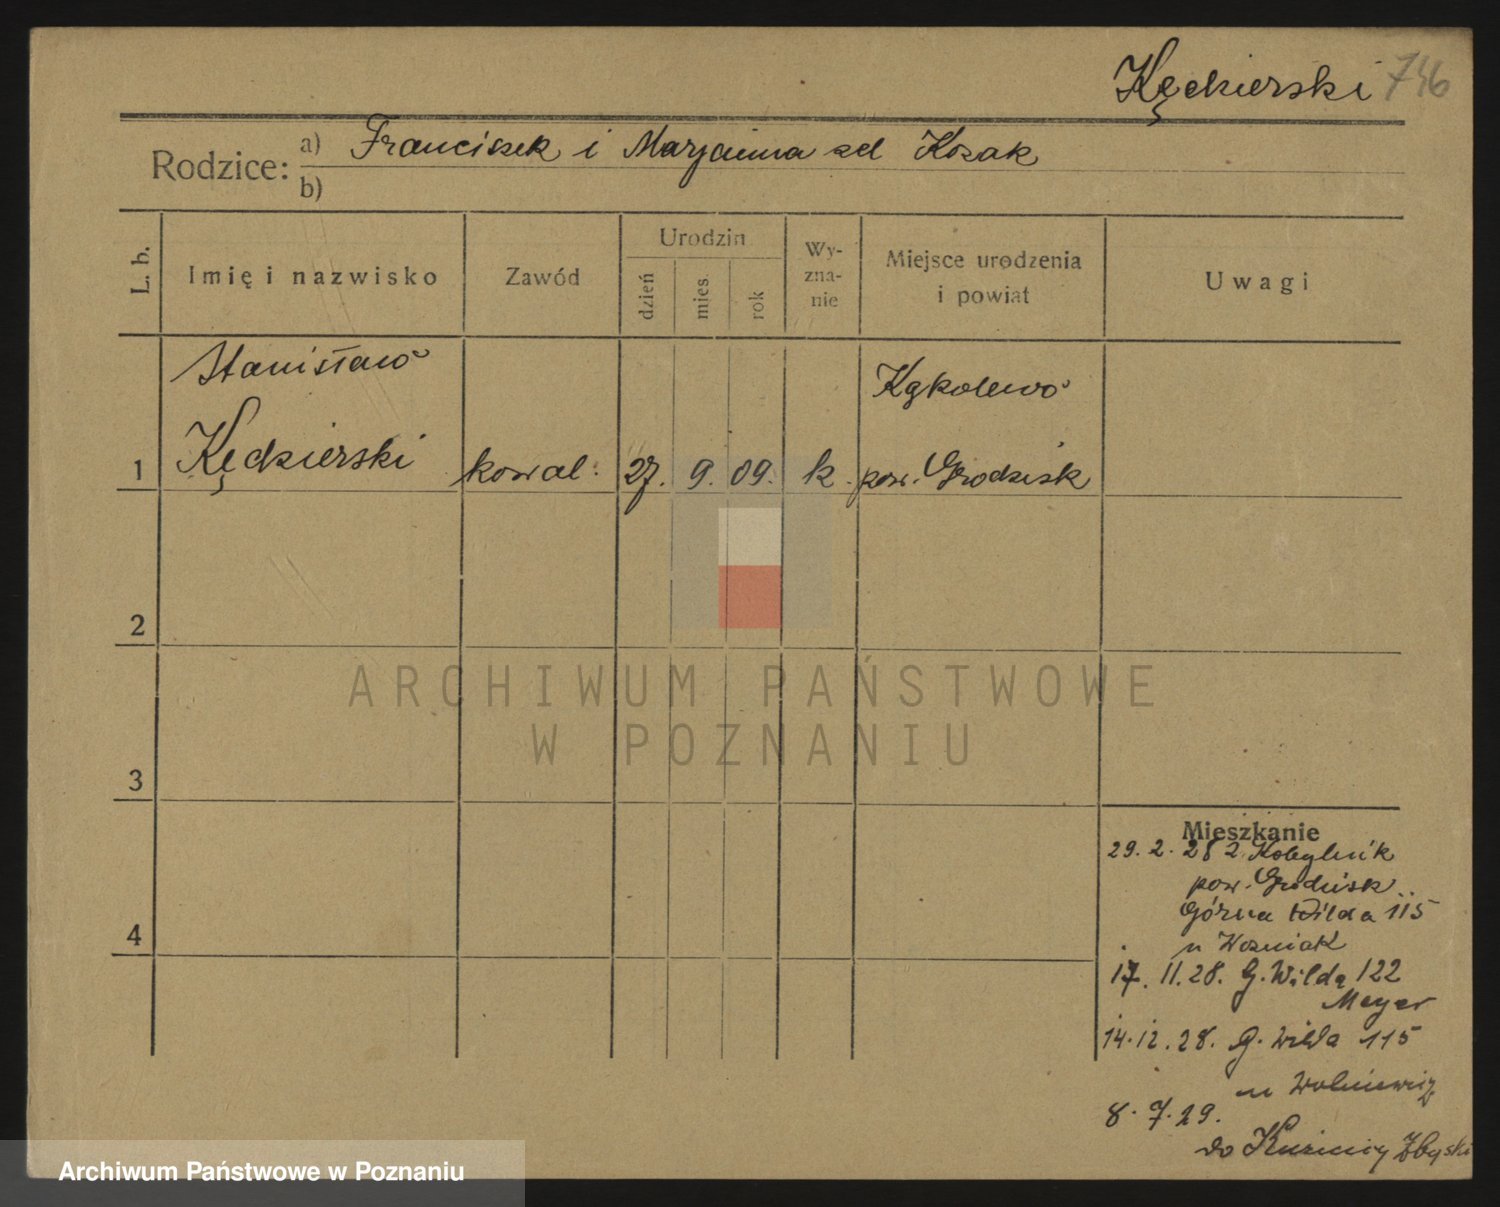 Kędzierski 746
Rodzice: a) Franciszek i Marjanna zd Kozak
b)
L. b.
Imię i nazwisko
Zawód
Urodzin
dzień
mies.
rok
Wy-
zna-
nie
Miejsce urodzenia
i powiat
Uwagi
Stanisław
Kąkolewo
1 Kędzierski kowal. 27. 9. 09. k. pow. Grodzisk
2
ARCHIWUM PAŃSTWOWE
W POZNANIU
3
Mieszkanie
29. 2. 28 z Kobylnik
pow. Grodzisk
Górna Wilda 115
u Wozniak
4
17. 11. 28. G. Wilda 122
Meyer
14. 12. 28. G. Wilda 115
u
8. 7. 29.
do
Archiwum Państwowe w Poznaniu